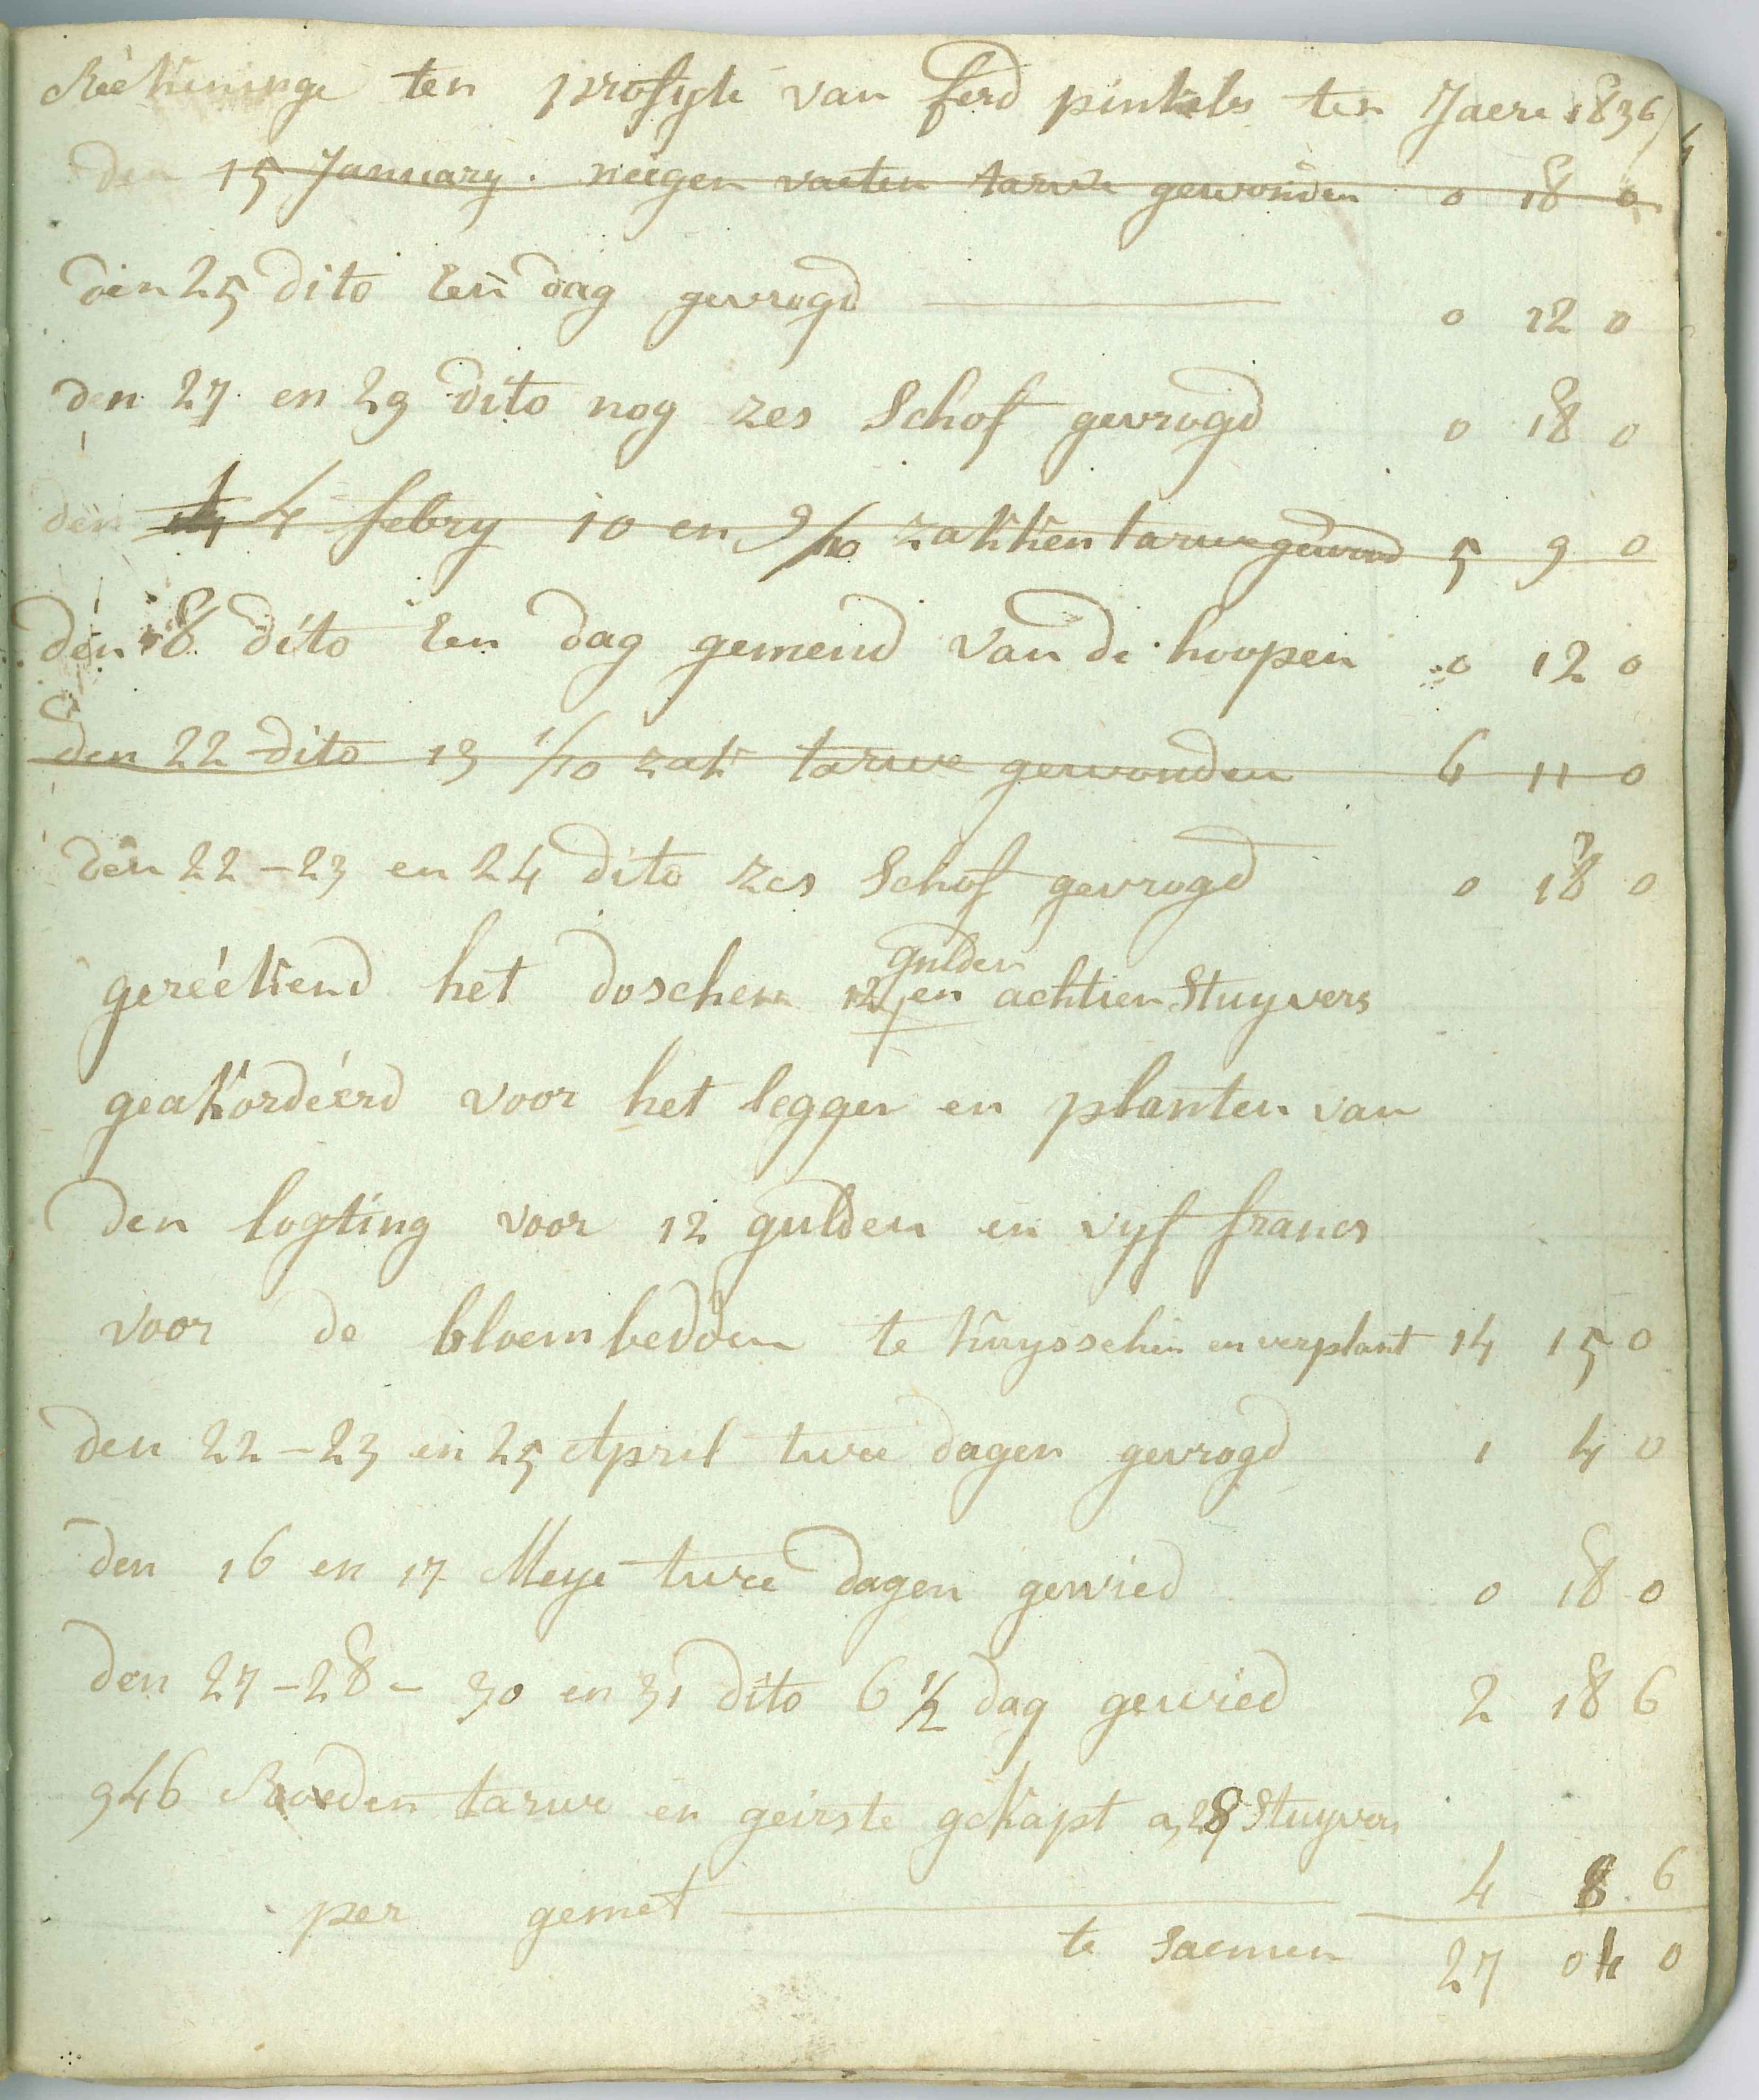 Reékeninge ten profyte van ferd pinkels ten Jaere 1836
den 15 January. neegen vaeten tarwe gewonden 0 18 0
den 25 dito een dag gevrogd 0 12 0
den 27 en 29 dito nog zes Schof gevrogd 0 18 0
den 4 febry 10 en 9/10 zakken tarwe gewond 5 9 0
den 8 dito een dag gemend van de hoopen 0 12 0
den 22 dito 13 1/10 zak tarwe gewonden 6 11 0
den 22-23 en 24 dito zes Schof gevrogd 0 18 0
gulden
gereékend het doschen 12 en achtien Stuyvers
geakordéerd voor het leggen en planten van
den logting voor 12 gulden en vyf francs
voor de bloembedden te kuysschen en verplant 14 15 0
den 22-23 en 25 April twee dagen gevrogd 1 4 0
den 16 en 17 Meye twee dagen gewied 0 18 0
den 27-28-30 en 31 dito 6 1/2 dag gewied 2 18 6
946 Roeden tarwe en geirste gekapt a 28 Stuyvers
per gemet 4 8 6
te saemen 27 04 0